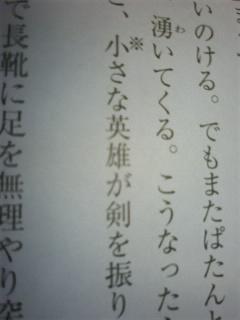 いのける。でもまたぱたんと
湧いてくる。こうなった
、小さな英雄が剣を振り
で長靴に足を無理やり突